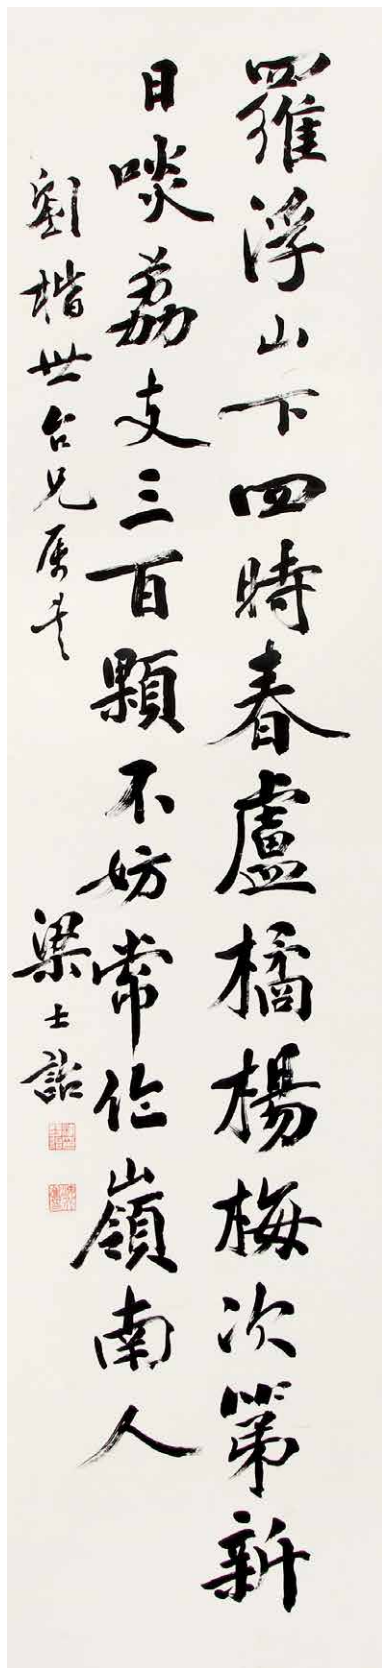 羅浮山下四時春盧橘楊梅次第新
日啖荔支三百顆不妨常作嶺南人
劉楷世台兄屬書
梁士詒